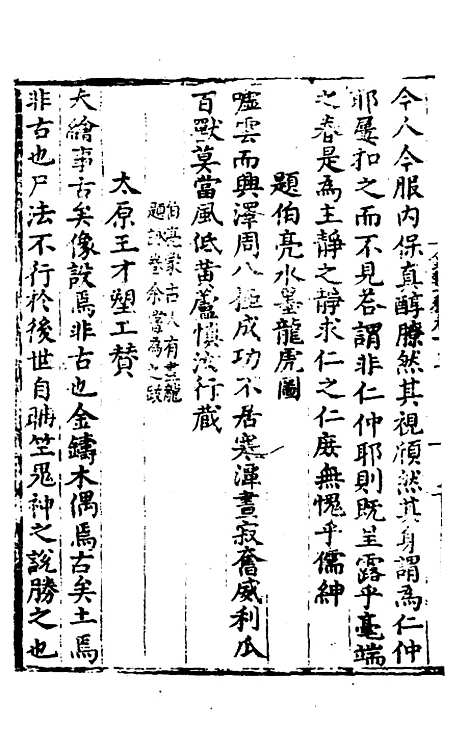 今人今服內保真醇瞭然其視頎然其身謂為仁仲
耶屢扣之而不見荅謂非仁仲耶則既呈露乎毫端
之春是為主靜之靜求仁之仁庶無愧乎儒紳
題伯亮水墨龍虎圖
噓雲而興澤周八極成功不居寒潭晝寂奮威利瓜
百獸莫當風低黃蘆慎汝行藏
伯亮蒙古人有畫龍
題詠卷余嘗為之跋
太原王才塑工贊
夫繪事古矣像設焉非古也金鑄木偶焉古矣土焉
非古也尸法不行於後世自聃竺鬼神之說勝之也